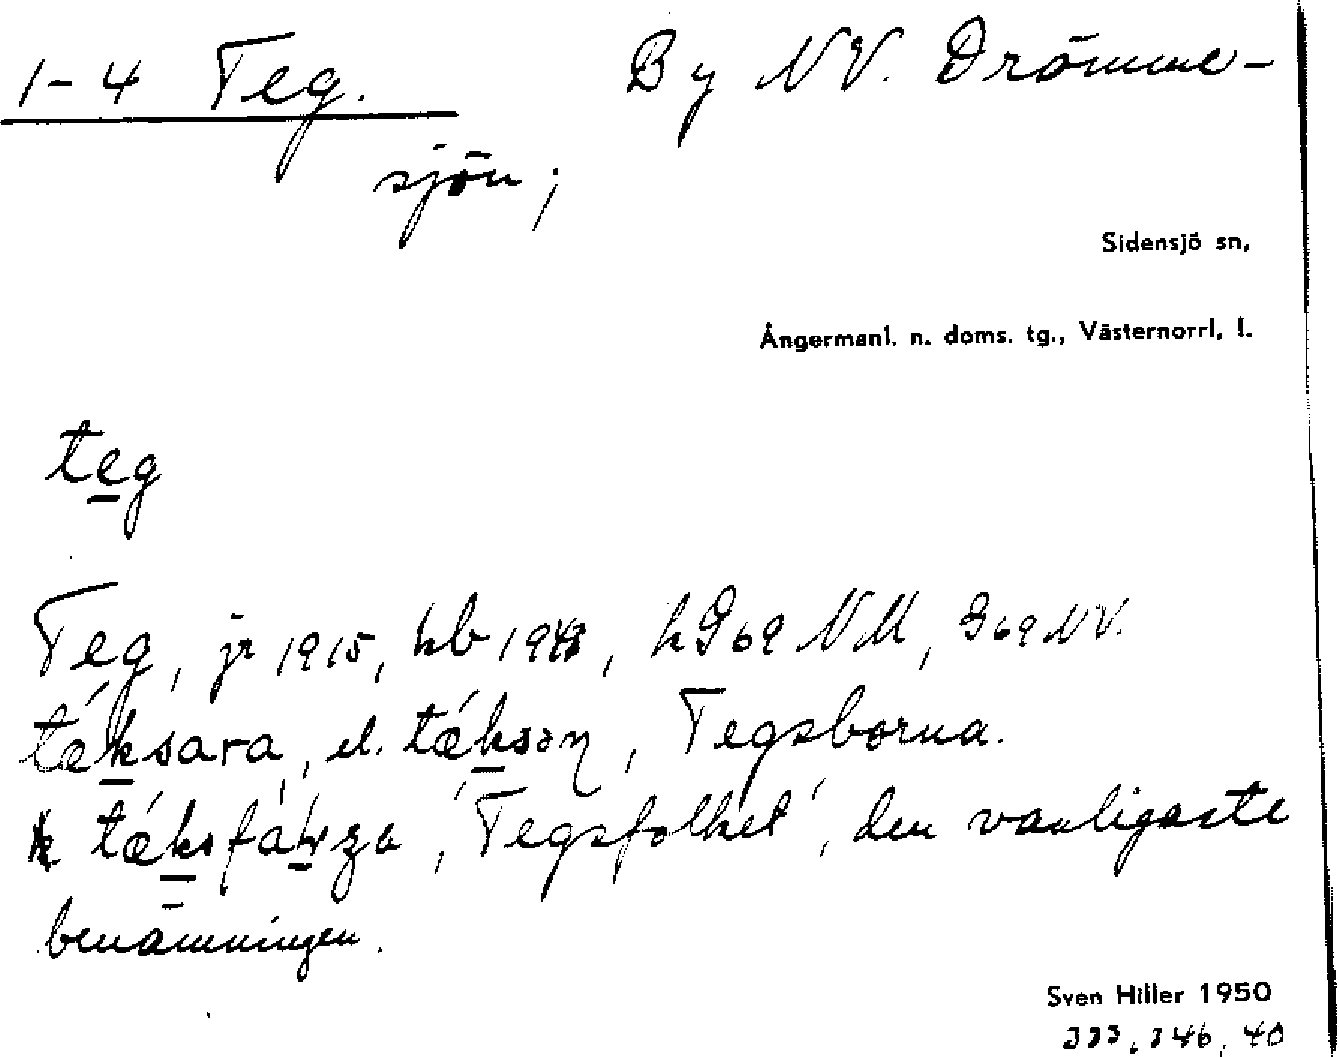 1-4 Teg. By NV. Drömme-
sjön;
Sidensjö sn,
Ångermanl. n. doms. tg., Västernorrl, l.
teg
Teg, jr 1915, hb 1948, h969 NM, 969 NV.
tæ´ksara, el. tæ´ksən, Tegsborna.
tæ´ks 'Tegsfolket', den vanligaste
benämningen.
Sven Hiller 1950
333, 346, 40